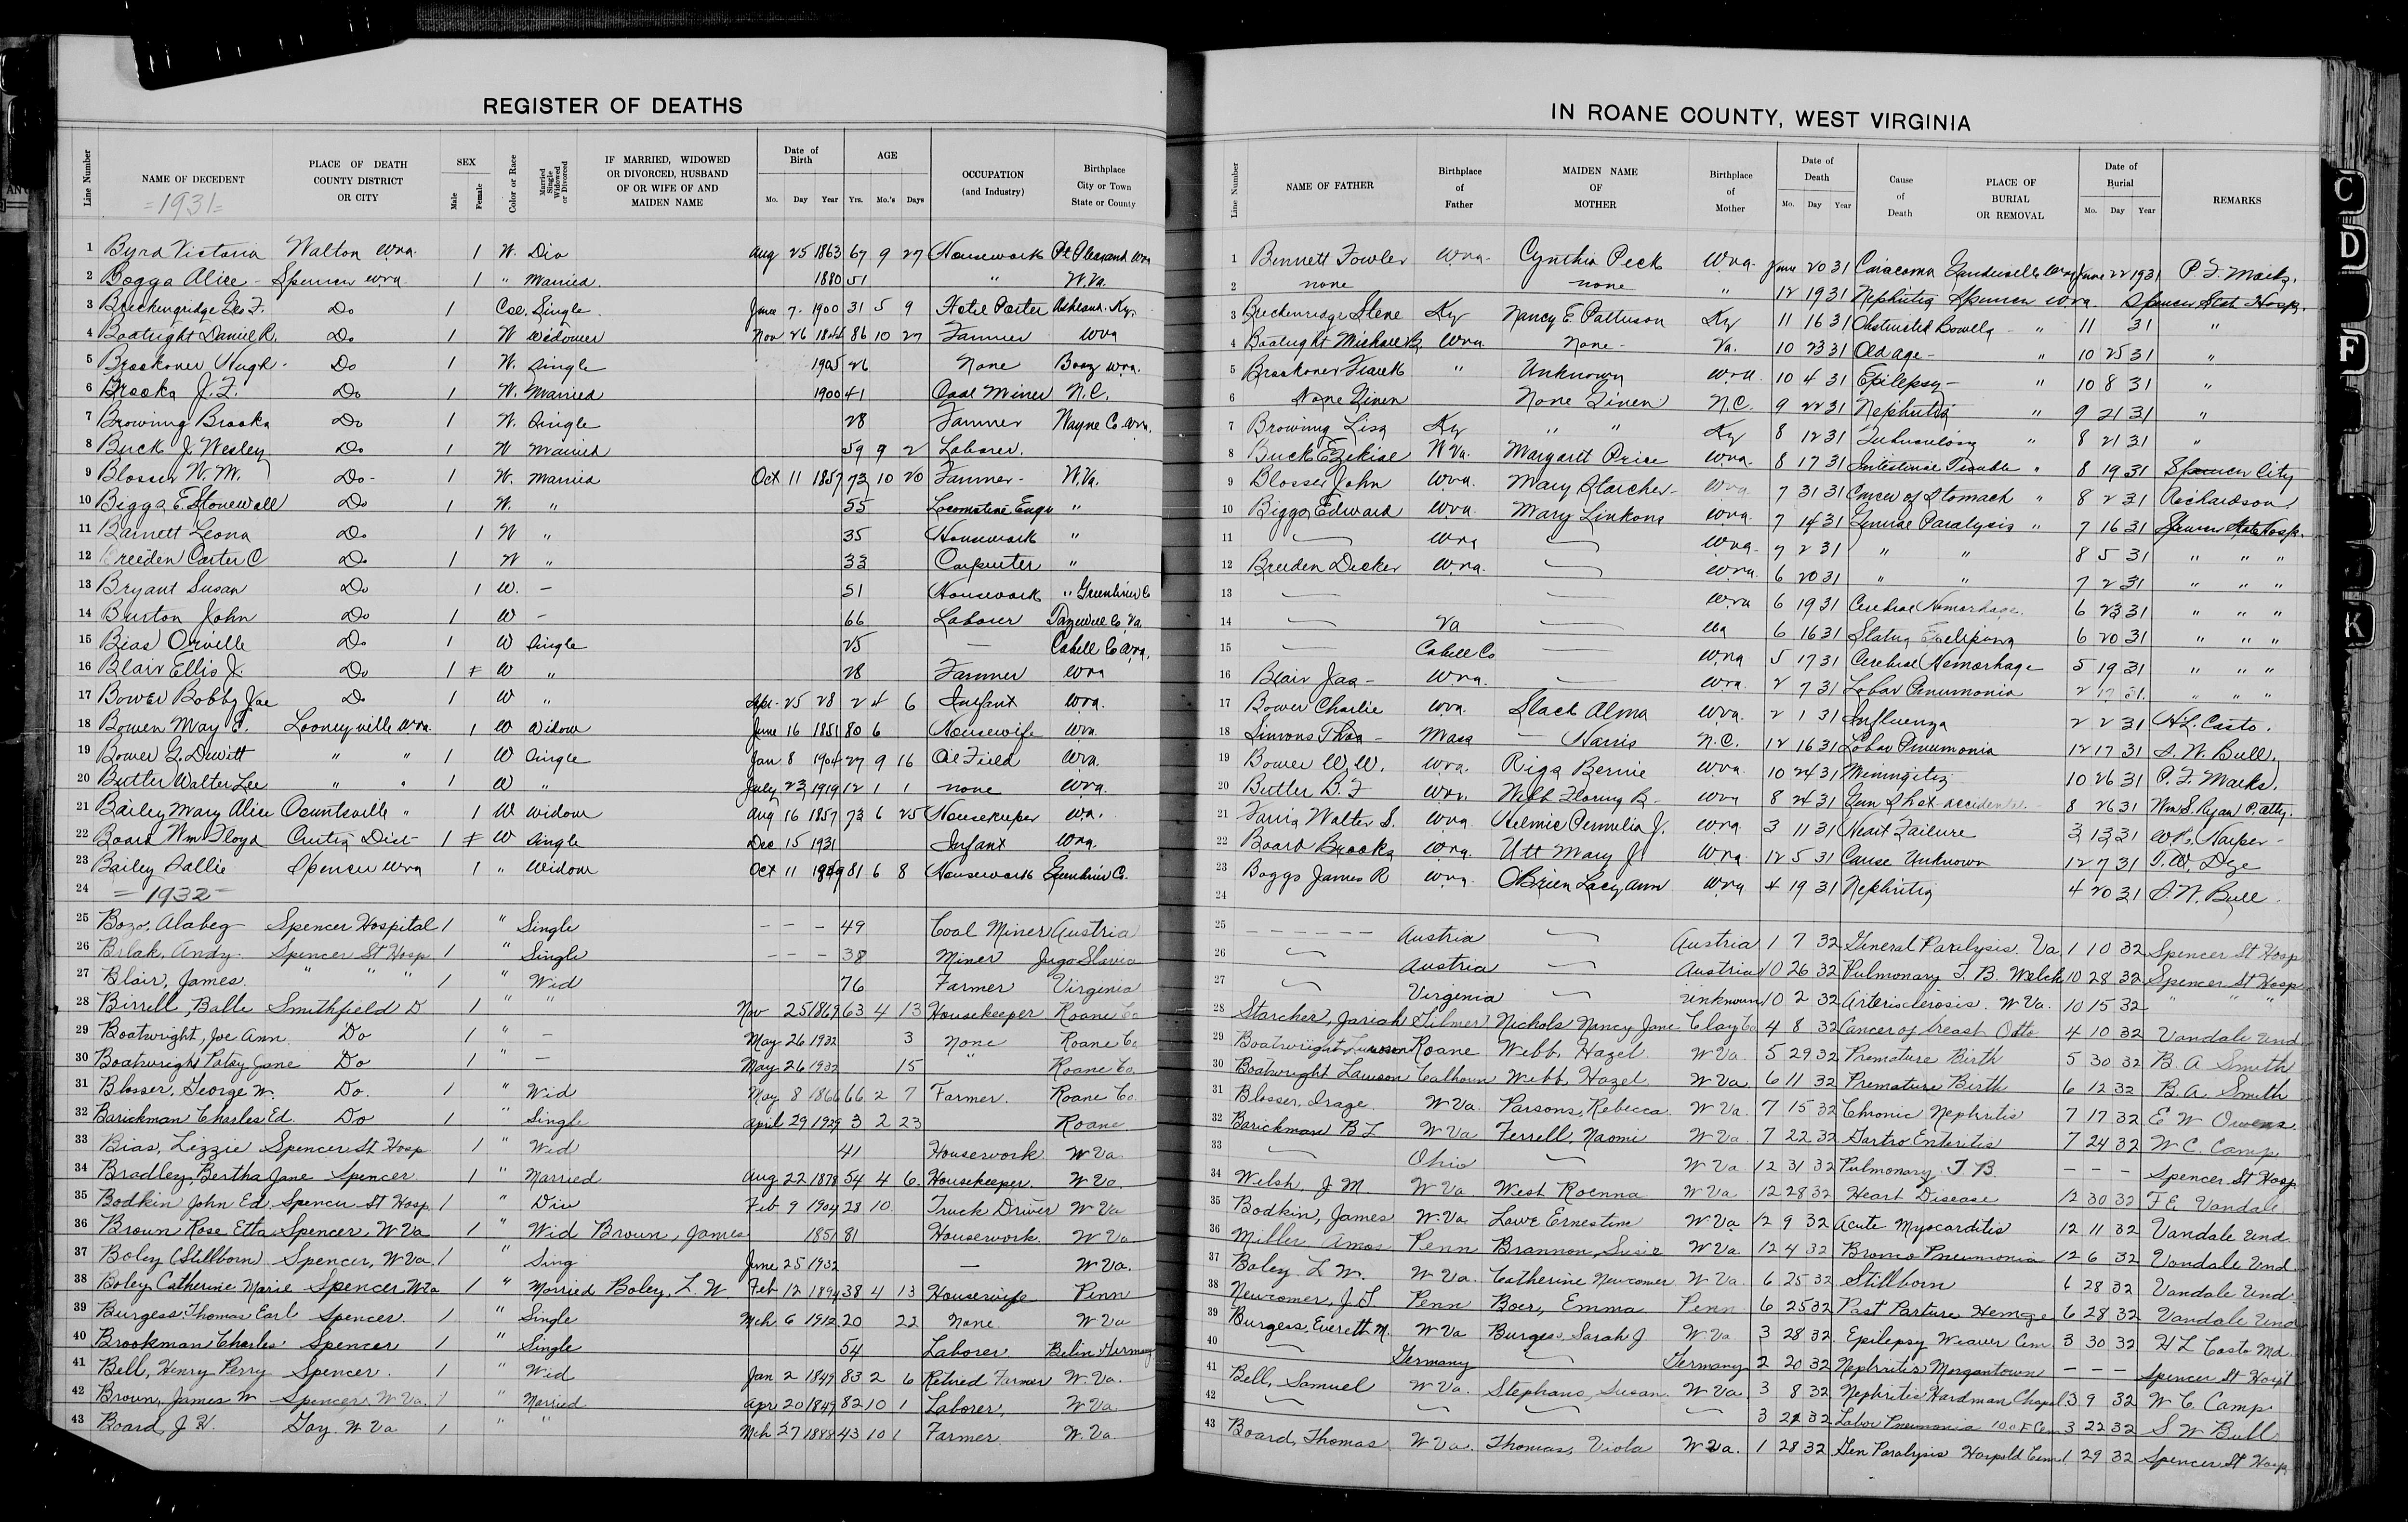 REGISTER OF DEATHS
Line Number | NAME OF DECEDENT | PLACE OF DEATH COUNTY DISTRICT OR CITY | SEX Male Female | Color or Race | Married Single Widowed or Divorced | IF MARRIED, WIDOWED OR DIVORCED, HUSBAND OF OR WIFE OF AND MAIDEN NAME | Date of Birth Mo. Day Year | AGE Yrs. Mo.'s Days | OCCUPATION (and Industry) | Birthplace City or Town State or County
=1931=
1 Byrd Victoria Walton Wva. 1 W. Div Aug 25 1863 67 9 27 Housework Pt Pleasant Wva
2 Boggs Alice - Spencer Wva. 1 " Married. 1880 51 " W.Va.
3 Breckengridge Geo F. Do 1 Col. Single. June 7- 1900 31 5 9 Hotel Porter Ky.
4 Boatright Daniel R. Do 1 W Widower Nov 26 1844 86 10 27 Farmer Wva
5 Brookover Hugh - Do 1 W. Single 1905 26 None Wva.
6 Brooks J. F. Do 1 W. Married 1900 41 Coal Miner N.C.
7 Browning Brooks Do 1 W. Single 28 Farmer Wayne Co Wva.
8 Buck J. Wesley Do 1 W Married 59 9 2 Laborer.
9 Blosser W. M. Do - 1 W. Married Oct 11 1857 73 10 20 Farmer - W.Va.
10 Biggs E. Stonewall Do 1 W. " 55 Locomotive Engr "
11 Barnett Leona Do 1 W " 35 Housework "
12 Breeden Carter C Do 1 W " 33 Carpenter "
13 Bryant Susan Do 1 W. - 51 Housework " Greenbrier Co
14 Burton John Do 1 W - 66 Laborer Tazewell Co, Va.
15 Bias Orville Do 1 W Single 25 — Cabell Co Wva.
16 Blair Ellis J. Do 1 W " 28 Farmer Wva
17 Bower Bobby Joe Do 1 W " Apr- 25 28 2 4 6 Infant Wva.
18 Bowen May E. Looneyville Wva. 1 W Widow June 16 1851 80 6 Housewife Wva.
19 Bower G. Dewitt " " 1 W Single Jan 8 1904 27 9 16 Oil Field Wva.
20 Butler Walter Lee " " 1 W " July 23 1919 12 1 1 none Wva.
21 Bailey Mary Alice Countsville " 1 W Widow Aug 16 1857 73 6 25 Housekeeper Wva.
22 Board Wm Floyd Curtis Dist - 1 W Single Dec 15 1931 Infant Wva.
23 Bailey Sallie Spencer Wva 1 " Widow Oct 11 1849 81 6 8 Housework Greenbrier Co.
24 = 1932 =
25 Bozo, Alabeg Spencer Hospital 1 " Single - - - 49 Coal Miner Austria
26 Brlak, Andy. Spencer St Hosp 1 " Single - - - 38 Miner Jugo Slavia
27 Blair, James. " " " 1 " Wid 76 Farmer Virginia
28 Birrell, Balle Smithfield D 1 " " Nov 25 1869 63 4 13 Housekeeper Roane Co
29 Boatwright, Joe Ann. Do 1 " — May 26 1932 3 None Roane Co
30 Boatwright Patsy Jane Do 1 " — May 26 1932 15 " Roane Co
31 Blosser, George W. Do. 1 " Wid May 8 1866 66 2 7 Farmer. Roane Co.
32 Barickman Charles Ed. Do 1 " Single April 29 1929 3 2 23 Roane
33 Bias, Lizzie Spencer St Hosp 1 " Wid 41 Housework W Va
34 Bradley, Bertha Jane Spencer 1 " Married Aug 22 1878 54 4 6 Housekeeper W Va.
35 Bodkin John Ed. Spencer St Hosp. 1 " Div Feb 9 1904 28 10 Truck Driver W Va
36 Broun Rose Etta Spencer, W Va 1 " Wid Broun, James 1851 81 Housework W Va
37 Boley (Stillborn) Spencer, W Va. 1 " Sing June 25 1932 — W Va.
38 Boley Catherine Marie Spencer, W Va 1 " Married Boley, L. W Feb 12 1894 38 4 13 Housewife Penn
39 Burgess. Thomas Earl Spencer. 1 " Single Mch 6 1912 20 22 None W Va
40 Brookman Charles Spencer 1 " Single 54 Laborer Belin Germany
41 Bell, Henry Perry Spencer. 1 " Wid Jan 2 1849 83 2 6 Retired Farmer W. Va.
42 Broun, James W Spencer, W Va. 1 " Married Apr 20 1849 82 10 1 Laborer, W Va
43 Board, J H. Gay W Va 1 " " Mch 27 1888 43 10 1 Farmer W. Va
IN ROANE COUNTY, WEST VIRGINIA
Line Number | NAME OF FATHER | Birthplace of Father | MAIDEN NAME OF MOTHER | Birthplace of Mother | Date of Death Mo. Day Year | Cause of Death | PLACE OF BURIAL OR REMOVAL | Date of Burial Mo. Day Year | REMARKS
1 Bennett Fowler Wva- Cynthia Peck Wva- June 20 31 Gandeeville Wva June 22 1931 P. F. Marks.
2 none none " 12 19 31 Nephritis Spencer Wva. Spencer State Hosp.
3 Breckenridge Steve Ky Nancy E. Patterson Ky 11 16 31 Obstructed Bowels - " 11 31 "
4 Boatright Michael B. Wva. None - Va. 10 23 31 Old age - " 10 25 31 "
5 Brookover Frank " Unknown Wva. 10 4 31 Epilepsy - " 10 8 31 "
6 None Given None Given N.C. 9 22 31 Nephritis " 9 21 31 "
7 Browning Lisa Ky " " Ky 8 12 31 Tuberculosis " 8 21 31 "
8 Buck Ezekiel W Va. Margaret Price Wva. 8 17 31 Intestinal Trouble " 8 19 31 Spencer City
9 Blosser John Wva. Mary Starcher- Wva 7 31 31 Cancer of Stomach " 8 2 31 Richardson.
10 Biggs, Edward Wva. Mary Linkons Wva. 7 14 31 General Paralysis " 7 16 31 Spencer State Hosp.
11 — Wva — Wva- 7 2 31 " " 8 5 31 " " "
12 Breeden Decker Wva. — Wva. 6 20 31 " " 7 2 31 " " "
13 — — Wva 6 19 31 Cerebral Hemorrhage. 6 23 31 " " "
14 — Va — 6 16 31 Status 6 20 31 " " "
15 — Cabell Co — Wva 5 17 31 Cerebral Hemorhage 5 19 31 " " "
16 Blair Jas - Wva. — Wva. 2 7 31 Lobar Pneumonia 2 17 31. " " "
17 Bower Charlie Wva. Slack Alma Wva. 2 1 31 Influenza 2 2 31 H.L. Casto.
18 Simons Thos - Mass — Harris N.C. 12 16 31 Lobar Pneumonia 12 17 31 S. W. Bull.
19 Bower W. W. Wva. Riggs Bernie Wva. 10 24 31 Miningitis 10 26 31 P. F. Marks.
20 Butler B. F Wva. Webb B - Wva 8 24 31 Gun Shot - accidental. - 8 26 31 Wm S. Ryan P. Atty.
21 Walter S. Wva. Permelia J. Wva 3 11 31 Heart Failure 3 13 31 Harper -
22 Board Brooks Wva. Utt Mary J Wva. 12 5 31 Cause Unknown 12 7 31
23 Boggs James R Wva. OBrien Lacy Ann Wva 4 19 31 Nephritis 4 20 31 S. W. Bull.
24
25 - - - - - - Austria — Austria 1 7 32 General Paralysis. Va. 1 10 32 Spencer St Hosp
26 — Austria — Austria 10 26 32 Pulmonary T. B. Welch 10 28 32 Spencer St Hosp
27 — Virginia — Unknown 10 2 32 Arterisclerosis. W Va. 10 15 32 " " "
28 Starcher, Jariah Gilmer Nichols Nancy Jane Clay Co 4 8 32 Cancer of breast Otto 4 10 32 Vandale Und
29 Boatwright Lawson Roane Webb, Hazel W Va. 5 29 32 Premature Birth 5 30 32 B. A Smith
30 Boatwright Lawson Calhoun Webb, Hazel W Va 6 11 32 Premature Birth 6 12 32 B. A. Smith
31 Blosser, Drage. W Va Parsons, Rebecca. W Va. 7 15 32 Chronic Nephritis 7 17 32 E W Owens.
32 Barickman B L W Va Ferrell, Naomi W Va. 7 22 32 Gastro Enteritis 7 24 32 W C. Camp
33 — Ohio — W Va 12 31 32 Pulmonary T B. - - - Spencer St Hosp
34 Welsh, J M. W Va. West Roenna W Va 12 28 32 Heart Disease 12 30 32 F E Vandale
35 Bodkin, James. W. Va Lowe Ernestine W Va 12 9 32 Acute Myocarditis 12 11 32 Vandale Und
36 Miller Amos Penn Brannon, Susie W Va 12 4 32 Bronco Pneumonia 12 6 32 Vandale Und
37 Boley L W. W Va. Catherine Newcomer W Va. 6 25 32 Stillborn 6 28 32 Vandale Und
38 Newcomer, J. T. Penn Boer, Emma Penn 6 25 32 Past Parture Hemrge 6 28 32 Vandale Und
39 Burgess, Everett M. W Va Burgess, Sarah J W Va 3 28 32 Epilepsy Weaver Cem 3 30 32 H L Casto Md.
40 — Germany — Germany 2 20 32 Nephritis Morgantown - - - Spencer St Hosp't
41 Bell, Samuel W Va. Stephans, Susan. W Va. 3 8 32 Nephritis Hardman Chapel 3 9 32 W C. Camp
42 — — — — 3 21 32 Lobar Pneumonia I O O F Cem 3 22 32 S W Bull
43 Board, Thomas W Va. Thomas, Viola W Va. 1 28 32 Gen Paralysis Harpold Cem 1 29 32 Spencer St Hosp
C
D
F
J
K